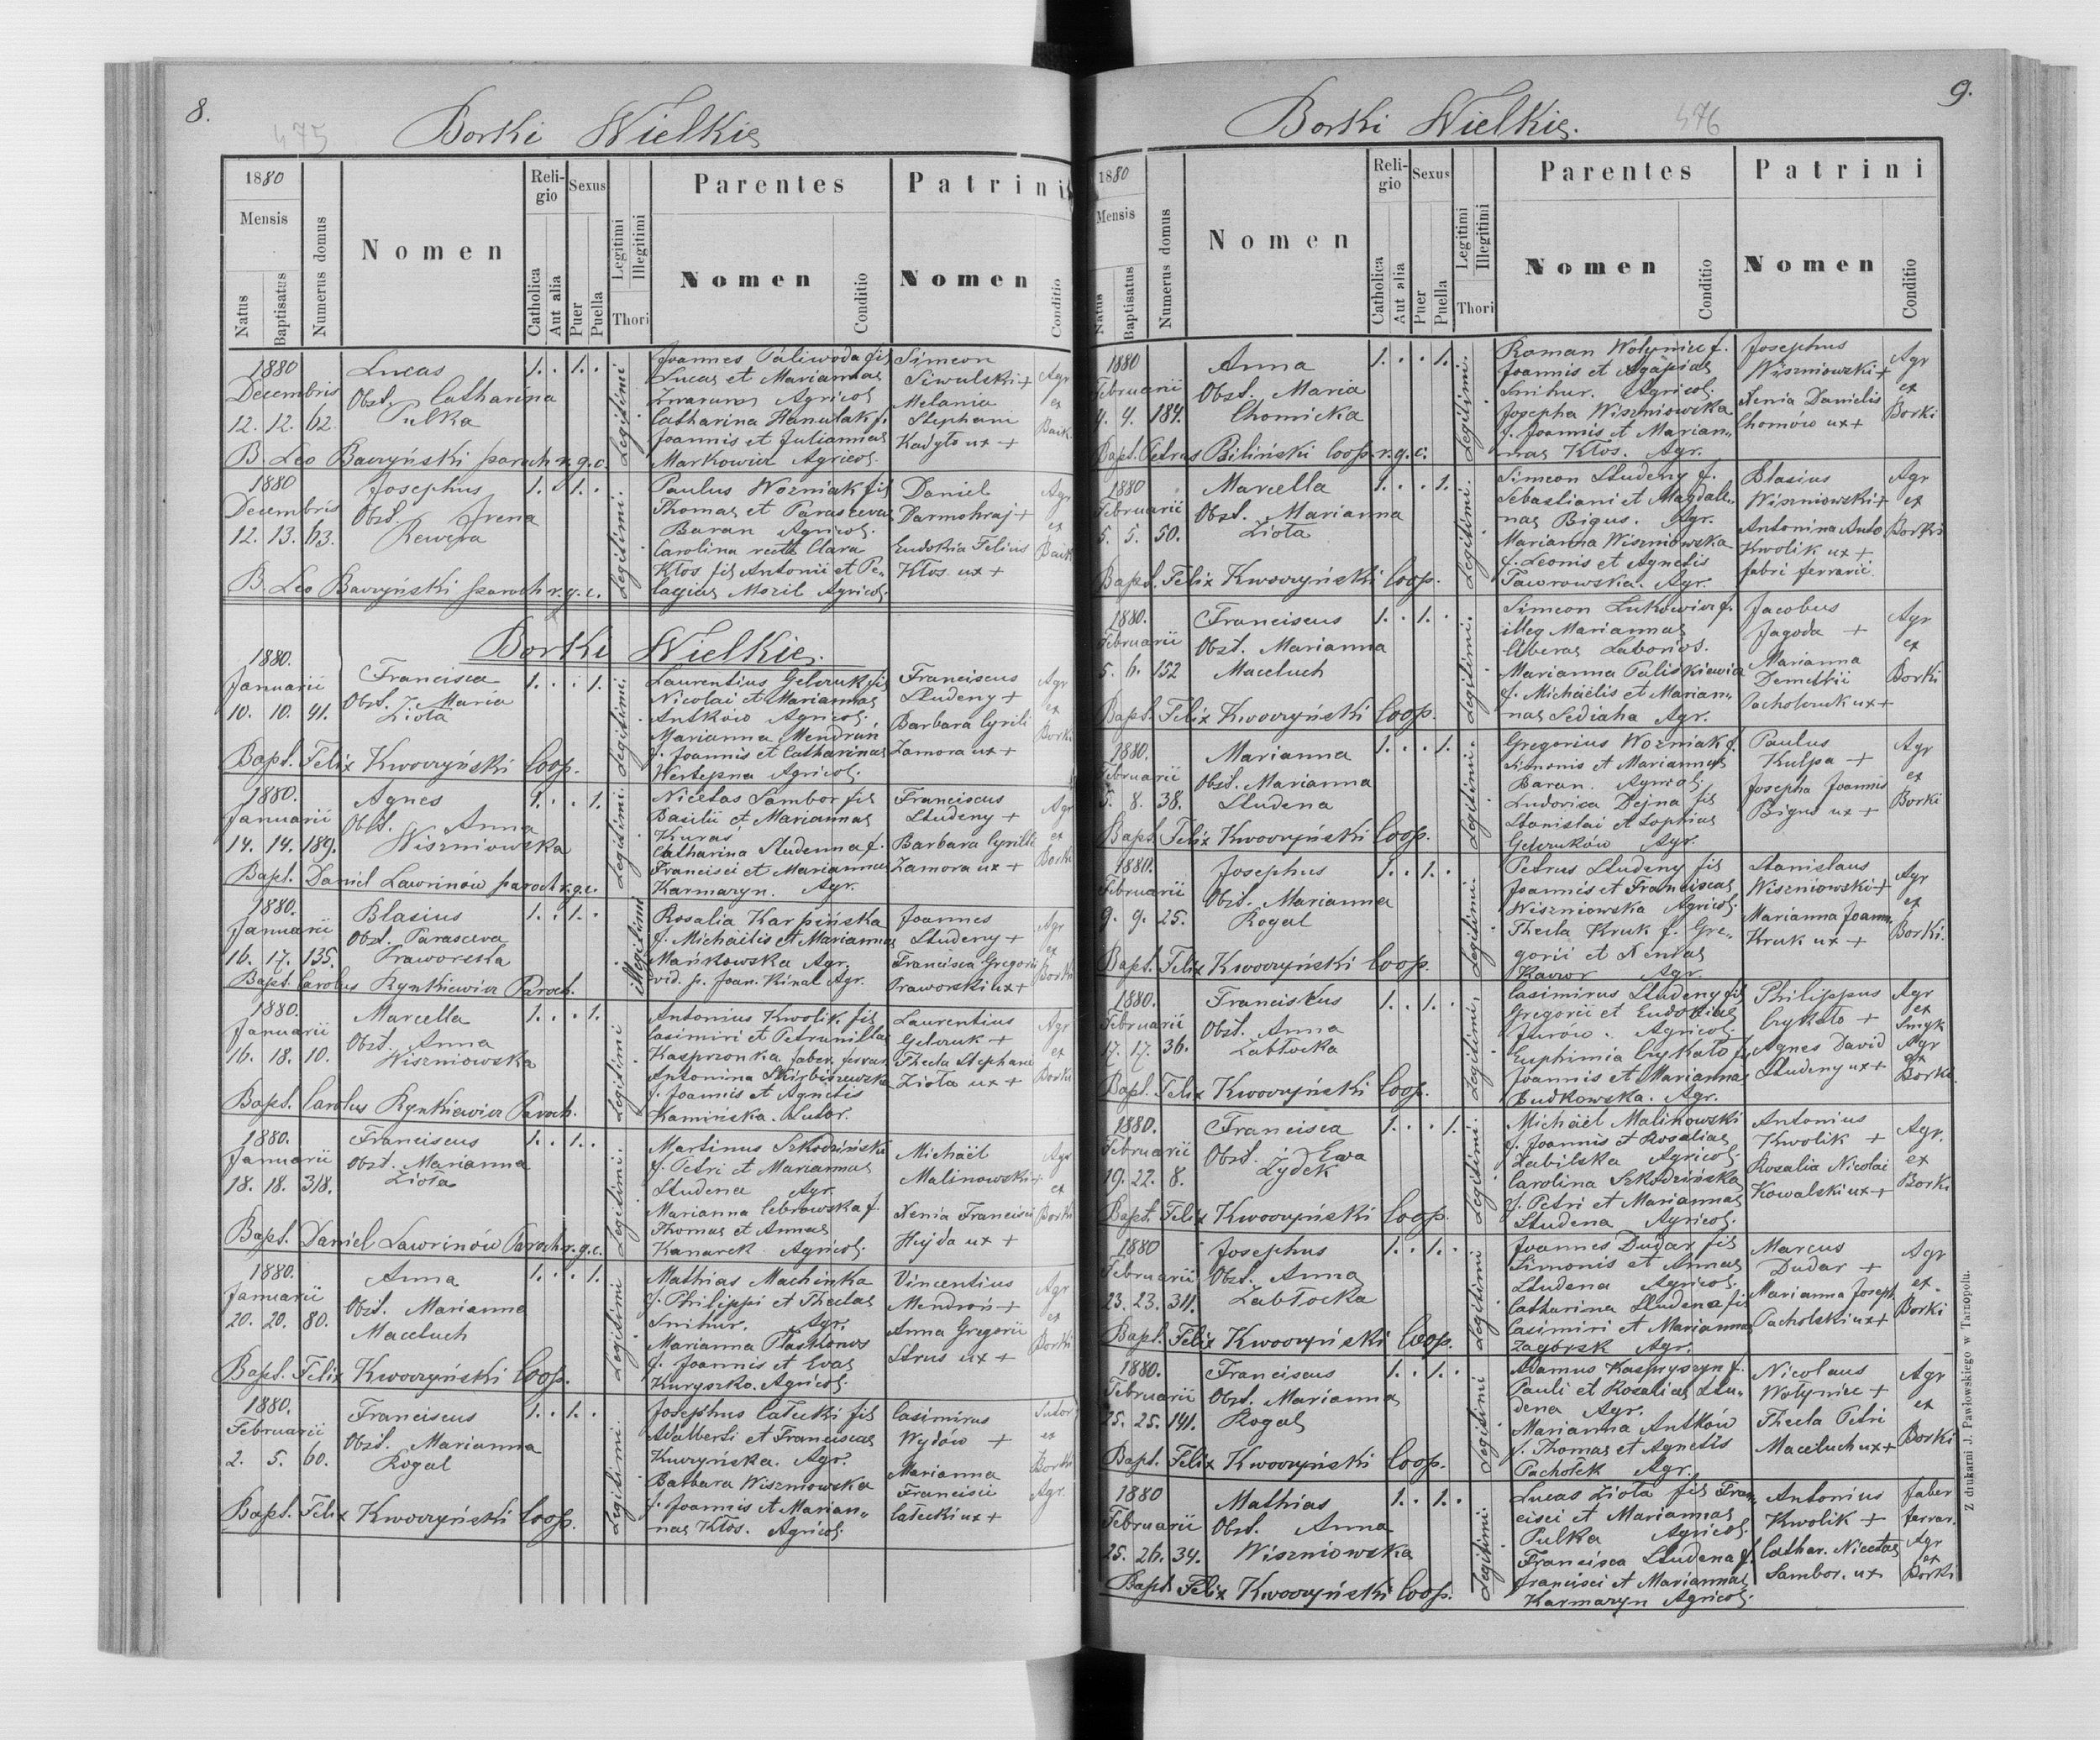 8.
475
Borki Wielkie
1880
Mensis
Natus
Baptisatus
Numerus domus
Nomen
Religio
Catholica
Aut alia
Sexus
Puer
Puella
Legitimi
Illegitimi
Thori
Parentes
Nomen
Conditio
Patrini
Nomen
Conditio
1880
Decembris
12. 12. 62.
Lucas
Obst. Catharina
Pulka
1. . 1. .
Legitimi
Joannes Paliwoda fil
Lucas et Mariannas
Agricol.
Catharina Hanulak f.
Joannis et Juliannas
Markowicz Agricol.
Simeon
Siwulski +
Melania
Stephani
Kadyło ux +
Agr
ex
Baik.
B. Leo Baczyński paroch r.g.c.
1880
Decembris
12. 13. 63.
Josephus
Obst. Irena
Rewera
1. . 1. .
Legitimi.
Paulus Wozniak fil
Thomas et Parasceva
Baran Agricol.
Carolina recte Clara
Kłos fil Antonii et Pe„
lagias Mozil Agricol.
Daniel
Darmohraj +
Eudokia Felixis
Kłos ux +
Agr
ex
Baik
B. Leo Baczyński paroch r.g.c.
Borki Wielkie.
1880.
Januarii
10. 10. 41.
Francisca
Obst. Maria
Ziola
1. . . 1.
Legitimi.
Laurentius Gelczuk fil
Nicolai et Mariannas
Antków Agricol.
Marianna Mendrun
f. Joannis et Catharinas
Wertepna Agricol.
Franciscus
Studeny +
Barbara Cyrili
Zamora ux +
Agr
ex
Borki
Bapt. Felix Kwoczyński Coop.
1880.
Januarii
14. 14. 189.
Agnes
Obst. Anna
Wiszniowska
1. . . 1.
Legitimi.
Nicetas Sambor fil
Basilii et Mariannas
Kuraś
Catharina Studenna f.
Francisci et Mariannas
Karmazyn. Agr.
Franciscus
Studeny +
Barbara Cyrilli
Zamora ux +
Agr
ex
Borki
Bapt. Daniel Lawrinów paroch r.g.c.
1880.
Januarii
16. 17. 135.
Blasius
Obst. Parasceva
Praworska
1. . 1. .
illegitimi
Rosalia Karpińska
f. Michäelis et Mariannas
Mańkowska Agr.
vid. p. Joan. Kinal Agr.
Joannes
Studeny +
Francisca Gregorii
Praworski ux +
Agr
ex
Borki
Bapt. Carolus Rynkiewicz Paroch.
1880.
Januarii
16. 18. 10.
Marcella
Obst. Anna
Wiszniowska
1. . . 1.
Legitimi
Antonius Kwolik fil
Casimiri et Petronillas
Kasprzonka faber ferrar
Antonina Skibiszewska
f. Joannis et Agnetis
Kamińska. Sutor.
Laurentius
Gelczuk +
Thecla Stephani
Ziola ux +
Agr
ex
Borki
Bapt. Carolus Rynkiewicz Paroch.
1880.
Januarii
18. 18. 318.
Franciscus
Obst. Marianna
Ziola
1. . 1. .
Legitimi.
Martinus Szkodziński
f. Petri et Mariannas
Studena Agr.
Marianna Cebrowska f.
Thomas et Annas
Kanarek Agricol.
Michäel
Malinowski +
Xenia Francisci
Hujda ux +
Agr
ex
Borki
Bapt. Daniel Lawrinów Paroch r.g.c.
1880.
Januarii
20. 20. 80.
Anna
Obst. Marianna
Maceluch
1. . . 1.
Legitimi
Mathias Machinka
f. Philippi et Theclas
Snihur. Agr.
Marianna
f. Joannis et Evas
Kuryszko. Agricol.
Vincentius
Mendroń +
Anna Gregorii
Strus ux +
Agr
ex
Borki
Bapt. Felix Kwoczyński Coop.
1880.
Februarii
2. 5. 60.
Franciscus
Obst. Marianna
Rogal
1. . 1. .
Legitimi.
Josephus Całucki fil
Adalberti et Franciscas
Kuczyńska. Agr.
Barbara Wiszniowska
f. Joannis et Marian„
nas Kłos. Agricol.
Casimirus
Wydów +
Marianna
Francisci
Całucki ux +
Sutor
ex
Borki
Agr.
Bapt. Felix Kwoczyński Coop.
9.
476
Borki Wielkie.
1880
Mensis
Natus
Baptisatus
Numerus domus
Nomen
Religio
Catholica
Aut alia
Sexus
Puer
Puella
Legitimi
Illegitimi
Thori
Parentes
Nomen
Conditio
Patrini
Nomen
Conditio
1880
Februarii
4. 4. 184.
Anna
Obst. Maria
Chomicka
1. . . 1.
Legitimi.
Roman Wołyniec f.
Joannis et Agapias
Snihur. Agricol.
Josepha Wiszniowska
f. Joannis et Marian„
nas Kłos. Agr.
Josephus
Wiszniowski +
Xenia Danielis
Chomów ux +
Agr
ex
Borki
Bapt. Petrus Biliński Coop. r.g.c.
1880
Februarii
5. 5. 50.
Marcella
Obst. Marianna
Ziola
1. . . 1.
Legitimi.
Simeon Studeny f.
Sebastiani et Magdale„
nas Bigus. Agr.
Marianna Wiszniowska
f. Leonis et Agnetis
Jaworowska. Agr.
Blasius
Wiszniowski +
Antonina Anto
Kwolik ux +
fabri ferrarii.
Agr
ex
Borki
Bapt. Felix Kwoczyński Coop.
1880.
Februarii
5. 6. 152
Franciscus
Obst. Marianna
Maceluch
1. . 1. .
Legitimi.
Simeon Lukowicz f.
illeg Mariannas
Liberas Laborios.
Marianna Paliszkiewicz
f. Michäelis et Marian„
nas Sediaha Agr.
Jacobus
Jagoda +
Marianna
Demetrii
Pacholczuk ux +
Agr
ex
Borki
Bapt. Felix Kwoczyński Coop.
1880.
Februarii
5. 8. 38.
Marianna
Obst. Marianna
Studena
1. . . 1.
Legitimi.
Gregorius Wozniak f.
Simonis et Mariannas
Baran. Agricol.
Ludovica Dejna fil
Stanislai et Sophias
Gelczuków Agr.
Paulus
Kulpa +
Josepha Joannis
Bigus ux +
Agr
ex
Borki
Bapt. Felix Kwoczyński Coop.
1880.
Februarii
9. 9. 25.
Josephus
Obst. Marianna
Rogal
1. . 1. .
Legitimi.
Petrus Studeny fil
Joannis et Franciscas
Wiszniowska Agricol.
Thecla Kruk f. Gre„
gorii et Xenias
Kaczor Agr.
Stanislaus
Wiszniowski +
Marianna Joann.
Kruk ux +
Agr
ex
Borki.
Bapt. Felix Kwoczyński Coop.
1880.
Februarii
17. 17. 36.
Franciskus
Obst. Anna
Zabłocka
1. . 1. .
Legitimi.
Casimirus Studeny fil
Gregorii et Eudokias
Jurów. Agricol.
Euphimia Crykało f.
Joannis et Mariannas
Budkowska. Agr.
Philippus
Crykało +
Agnes David
Studeny ux +
Agr
ex
Smyk
Agr
ex
Borki.
Bapt. Felix Kwoczyński Coop.
1880.
Februarii
19. 22. 8.
Francisca
Obst. Ewa
Żydek
1. . . 1.
Legitimi.
Michäel Malinowski
f. Joannis et Rosalias
Zabilska Agricol.
Carolina Szkodzińska
f. Petri et Mariannas
Studena Agricol.
Antonius
Kwolik +
Rosalia Nicolai
Kowalski ux +
Agr.
ex
Borki
Bapt. Felix Kwoczyński Coop.
1880
Februarii
23. 23. 311.
Josephus
Obst. Anna
Zabłocka
1. . 1. .
Legitimi
Joannes Dudar fil
Simonis et Annas
Studena Agricol.
Catharina Studena fil
Casimiri et Mariannas
Zagórsk Agr.
Marcus
Dudar +
Marianna Joseph.
Pacholski ux +
Agr
ex.
Borki
Bapt. Felix Kwoczyński Coop.
1880.
Februarii
25. 25. 141.
Franciscus
Obst. Marianna
Rogal
1. . 1. .
Legitimi
Adamus Kaspryszyn f.
Pauli et Rosalias Stu„
dena Agr.
Marianna Antków
f. Thomas et Agnetis
Pachołek Agr.
Nicolaus
Wołyniec +
Thecla Petri
Maceluch ux +
Agr
ex
Borki
Bapt. Felix Kwoczyński Coop.
1880
Februarii
25. 26. 34.
Mathias
Obst. Anna
Wiszniowska
1. . 1. .
Legitimi.
Lucas Ziola fil Fran„
cisci et Mariannas
Pulka Agricol.
Francisca Studena f.
Francisci et Mariannas
Karmazyn Agricol.
Antonius
Kwolik +
Cathar. Nicetas
Sambor. ux
faber
ferrar.
Agr
ex
Borki
Bapt. Felix Kwoczyński Coop.
Z drukarni J. Pawłowskiego w Tarnopolu.